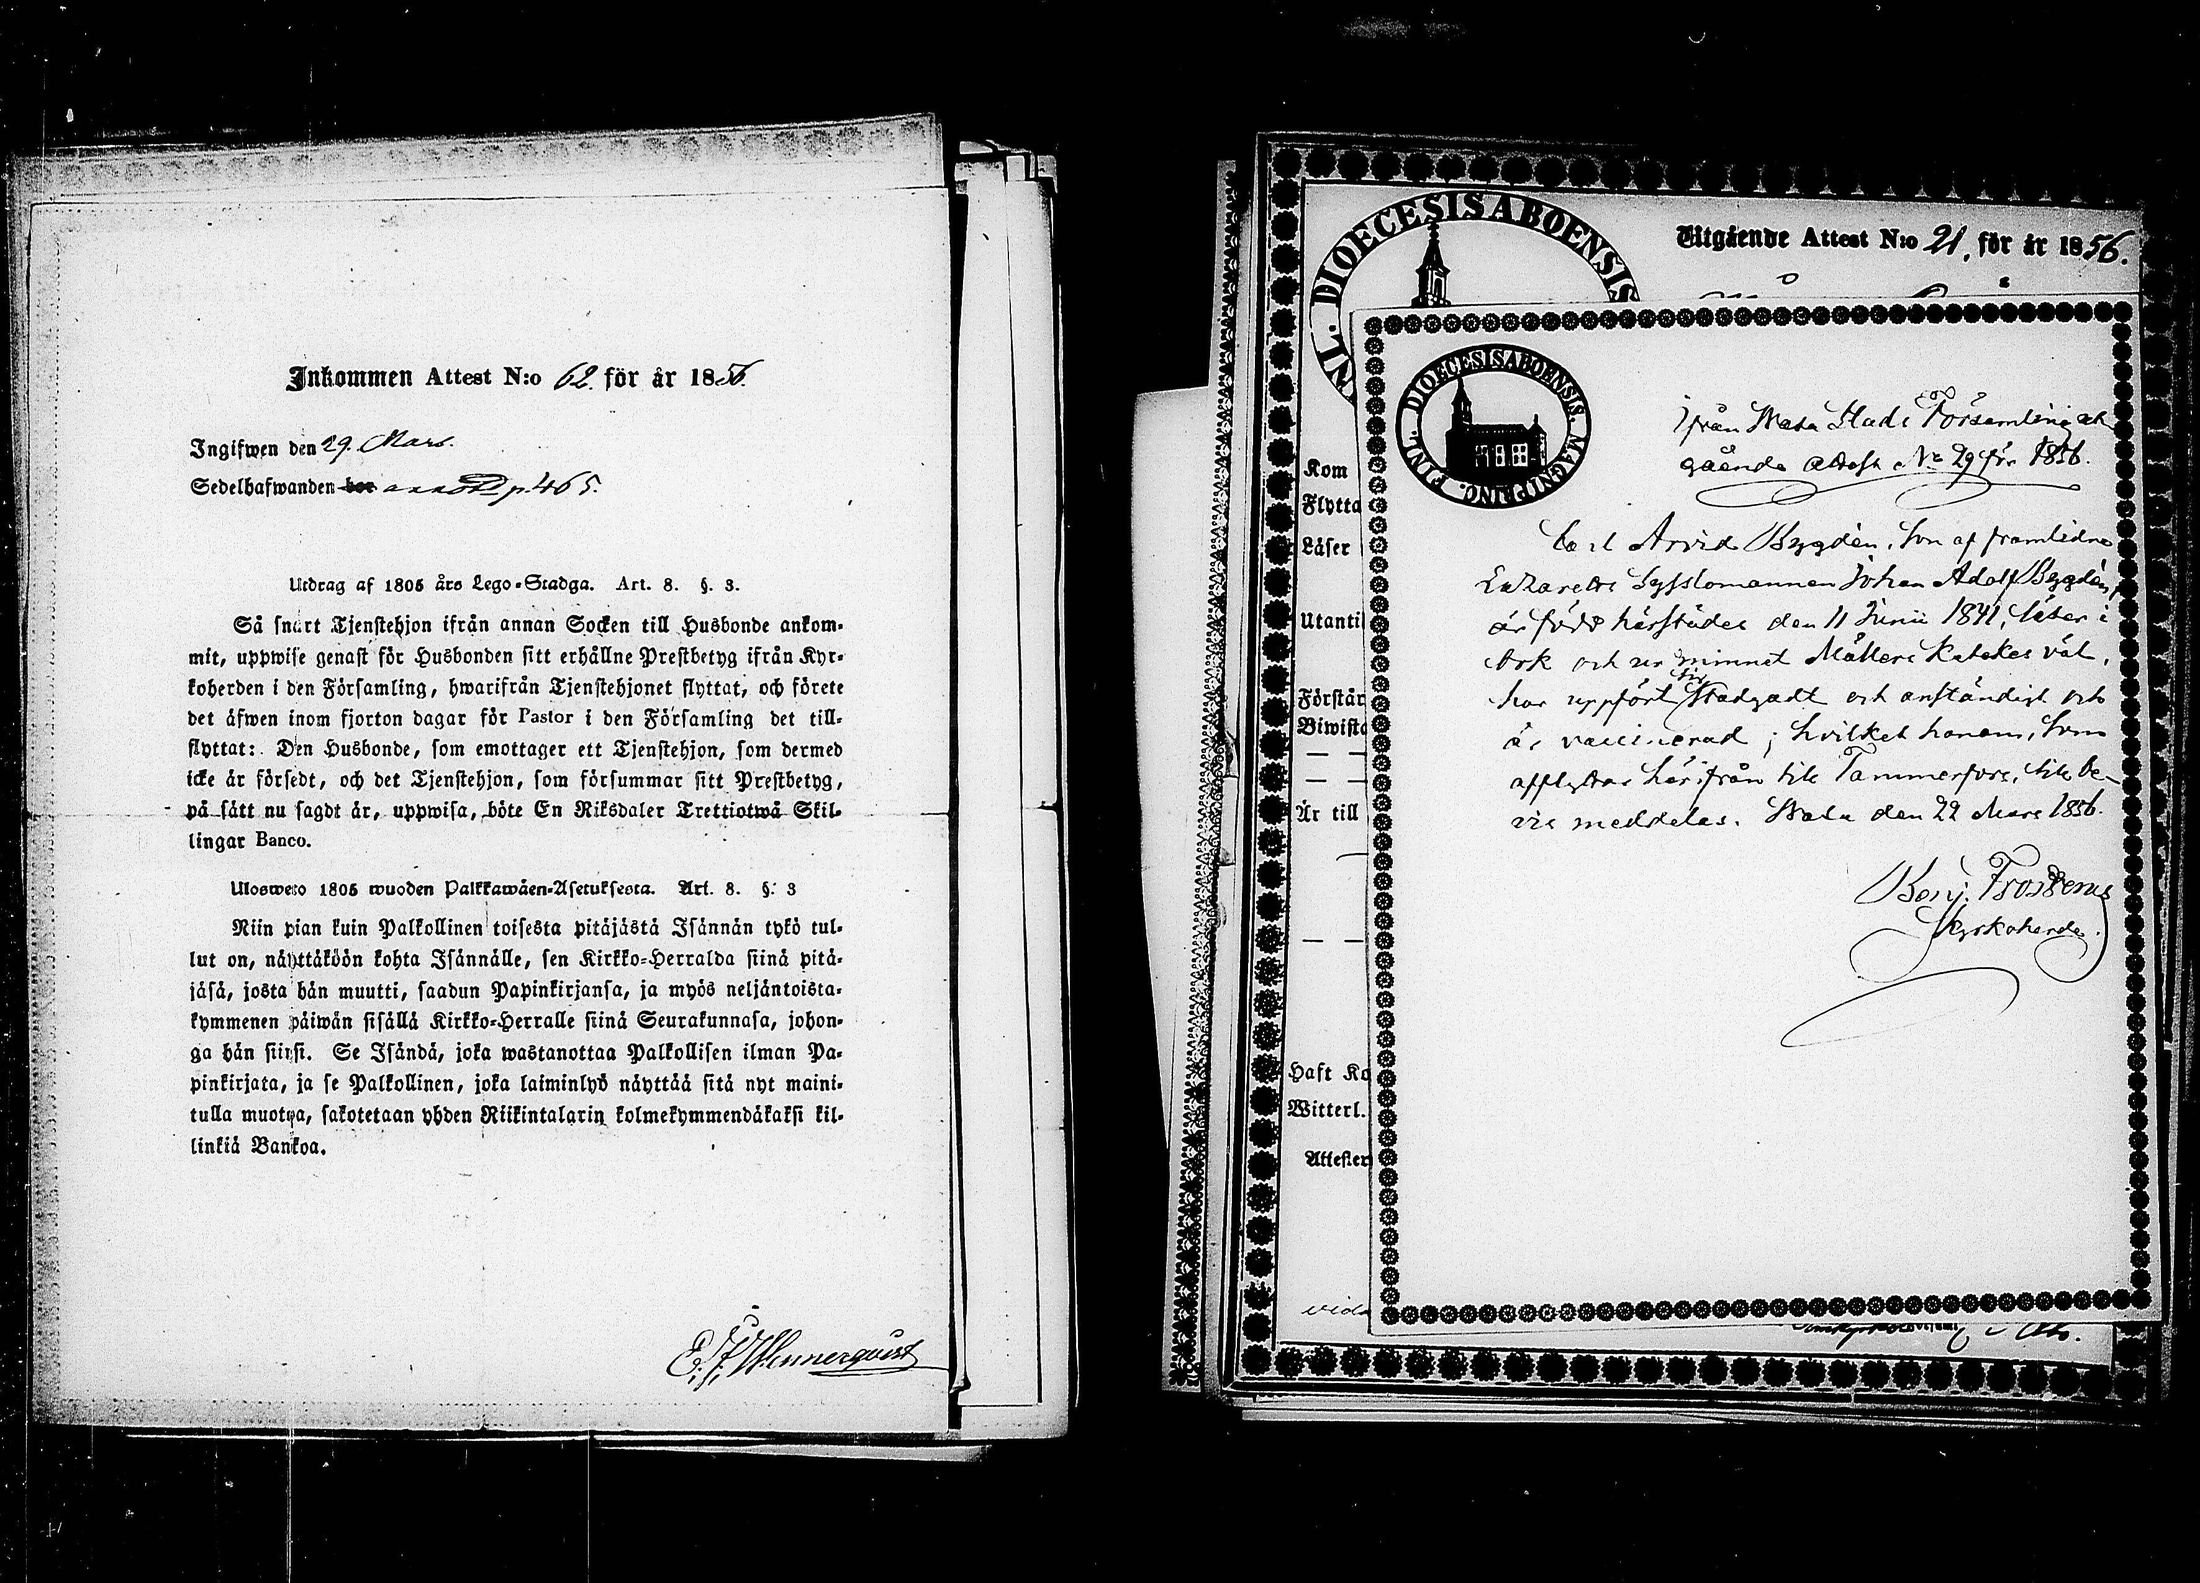 Inkommen Attest N:o 62. för år 1856.
Ingifwen den 29. Mars.
Sedelhafwanden har annot. p. 465.
Utdrag af 1805 års Lego-Stadga. Art. 8. §. 3.
Så snart Tjenstehjon ifrån annan Socken till Husbonde ankom-
mit, uppwise genast för Husbonden sitt erhållne Prestbetyg ifrån Kyr-
koherden i den Församling, hwarifrån Tjenstehjonet flyttat, och förete
det äfwen inom fjorton dagar för Pastor i den Församling det till-
flyttat: Den Husbonde, som emottager ett Tjenstehjon, som dermed
icke är försedt, och det Tjenstehjon, som försummar sitt Prestbetyg,
på sätt nu sagdt är, uppwisa, böte En Riksdaler Trettiotwå Skil-
lingar Banco.
Ulosweto 1805 wuoden Palkkawäen-Asetuksesta. Art. 8. §. 3
Niin pian kuin Palkollinen toisesta pitäjästä Isännän tykö tul-
lut on, näyttäköön kohta Isännälle, sen Kirkko-Herralda siinä pitä-
jäsä, josta hän muutti, saadun Papinkirjansa, ja myös neljäntoista-
kymmenen päiwän sisällä Kirkko-Herralle siinä Seurakunnasa, johon-
ga hän siirsi. Se Isändä, joka wastanottaa Palkollisen ilman Pa-
pinkirjata, ja se Palkollinen, joka laiminlyö näyttää sitä nyt maini-
tulla muotoa, sakotetaan yhden Riikintalarin kolmekymmendäkaksi kil-
linkiä Bankoa.
DIOECESIS ABOENSIS
Utgående Attest N:o 21. för år 1856.
Kom
Flytta
Läser
Utanti
Förstår
Biwista
Är till
Haft Ko
Witterl.
Attester
DIOECESIS ABOENSIS. MAGN. PRINC. FINL.
Ifrån Wasa Stads Församling ut
gående Attest No 29 för 1856.
Carl Arvid Bygdén, Son af framlidne
Lazaretts Sysslomannen Johan Adolf Bygdén,
är född härstädes den 11 Junii 1841, läser i
bok och ur minnet Möllers Katekes väl,
har uppfört sig stadgadt och anständigt och
är vaccinerad; hvilket honom, som
afflyttar härifrån till Tammerfors, till be-
vis meddelas. Wasa den 22 Mars 1856.
Benj. Frosterus
Kyrkoherde.